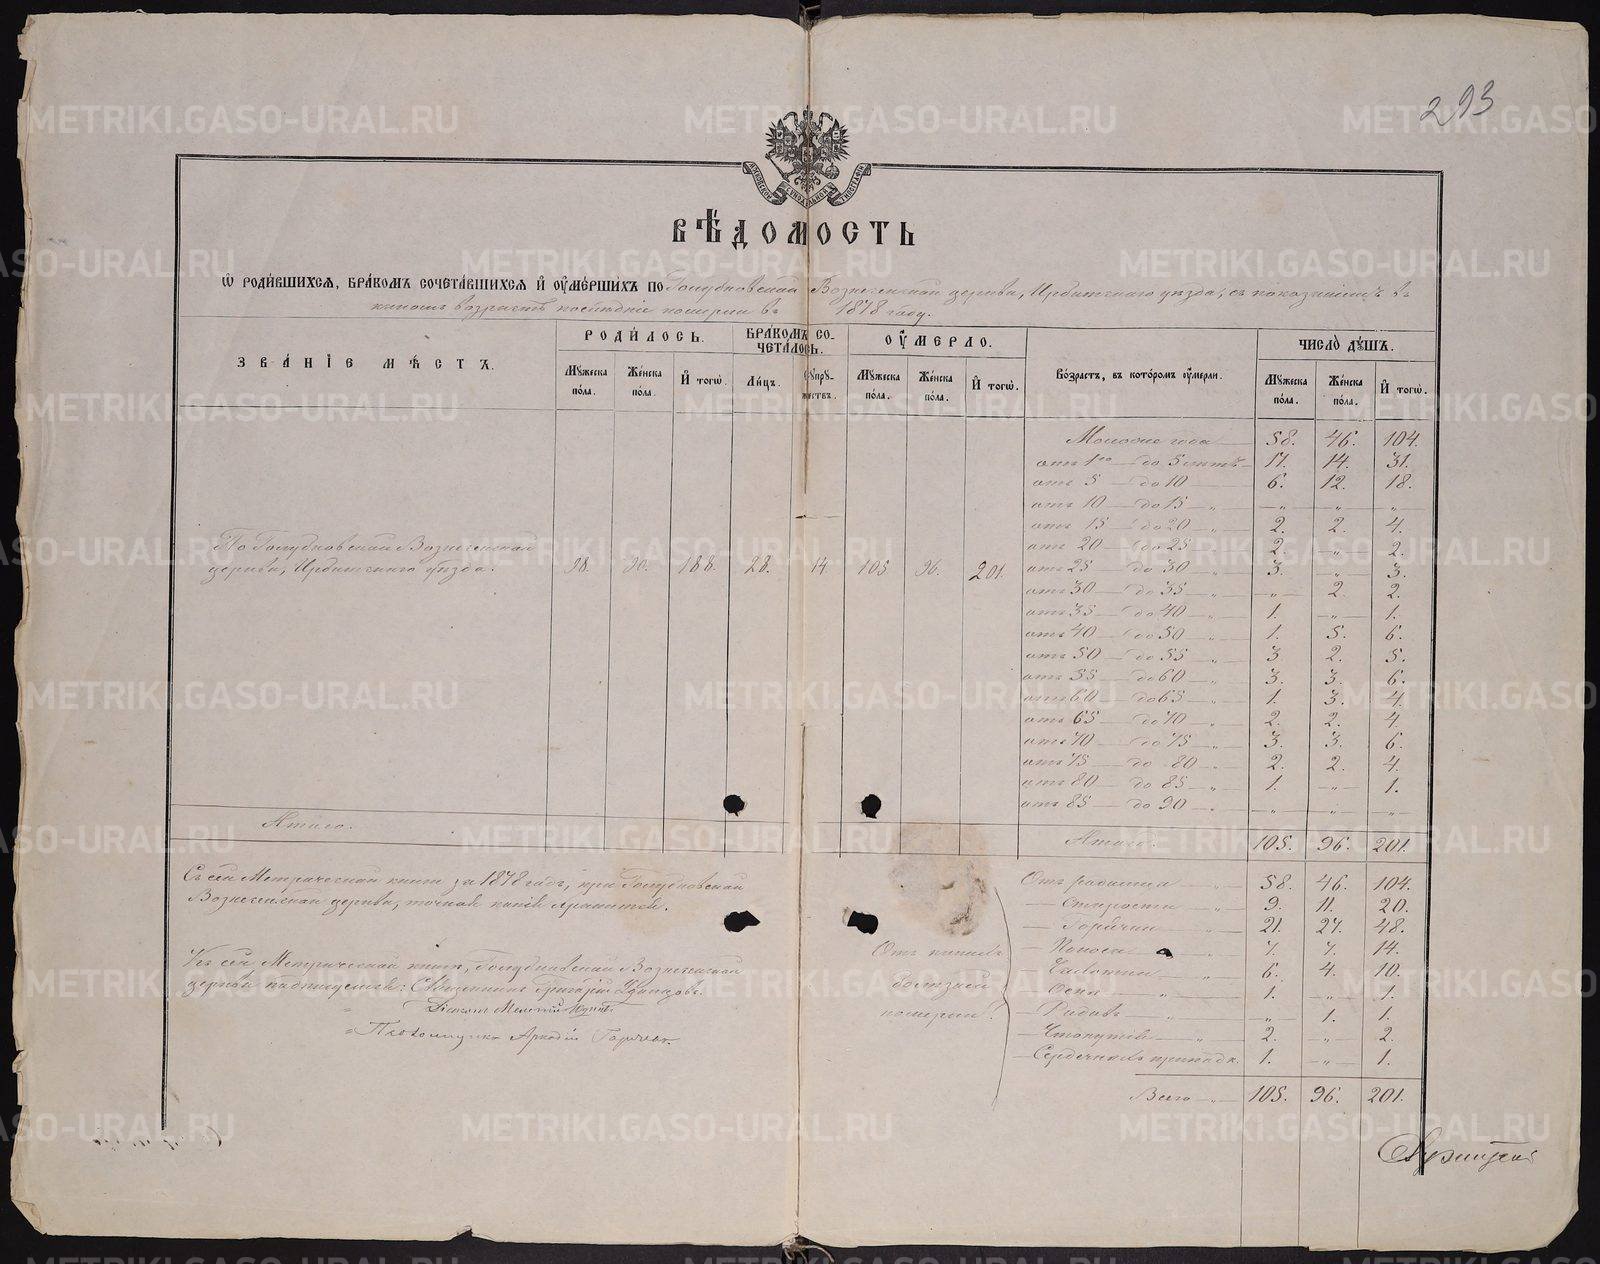 293
МОСКОВСКОЙ СѴНОДАЛЬНОЙ ТИПОГРАФІИ
ВѢ́ДОМОСТЬ
Ѡ РОДИ́ВШИХСЯ, БРА́КОМЪ СОЧЕТА́ВШИХСЯ И҆ ОУ҆МЕ́РШИХЪ ПО Голубковской Вознесенской церкви, Ирбитскаго уѣзда, съ показаніемъ въ
какомъ возрастѣ послѣдніе померли въ 1878 году.
ЗВА́НІЕ МѢ́СТЪ.
РОДИ́ЛОСЬ.
Мꙋ́жеска по́ла.
Же́нска по́ла.
И҆ тогѡ̀.
БРА́КОМЪ СОЧЕТА́ЛОСЬ.
Ли́цъ.
Сꙋпрꙋ́жествъ.
ОУ҆́МЕРЛО.
Мꙋ́жеска по́ла.
Же́нска по́ла.
И҆ тогѡ̀.
Во́зрастъ, въ кото́ромъ оу҆́мерли.
ЧИСЛО̀ ДꙊ́ШЪ.
Мꙋ́жеска по́ла.
Же́нска по́ла.
И҆ тогѡ̀.
По Голубковской Вознесенской
церкви, Ирбитскаго уѣзда. 98. 90. 188. 28. 14 105 96. 201.
58. 46. 104.
отъ 1го — до 5 лѣтъ — 17. 14. 31.
отъ 5 — до 10 — 6. 12. 18.
отъ 10 — до 15 — „ — „ — „ — „
отъ 15 — до 20 — „ — 2. 2. 4.
отъ 20 — до 25 — 2. — „ — 2.
отъ 25 — до 30 — 3. — „ — 3.
отъ 30 — до 35 — „ — „ — 2. 2.
отъ 35 — до 40 — „ — 1. — „ — 1.
отъ 40 — до 50 — „ — 1. 5. 6.
отъ 50 — до 55 — „ — 3 2. 5.
отъ 55 — до 60 — „ — 3. 3. 6.
отъ 60 — до 65 — 1. 3. 4.
отъ 65 — до 70 — „ — 2. 2. 4.
отъ 70 — до 75 — „ — 3. 3. 6.
отъ 75 — до 80 — „ — 2. 2. 4.
отъ 80 — до 85 — „ — 1. — „ — 1.
отъ 85 — до 90 — „ — „ — „ — „
Итого.
Итого. 105. 96. 201.
Съ сей Метрической книги за 1878 годъ, при Голубковской
Вознесенской церкви, точная копія хранится.
Къ сей Метрической книгѣ, Голубковской Вознесенской
церкви подписуемся: Священникъ Григорій Удинцовъ.
Діаконъ
Псаломщикъ Аркадій
Отъ какихъ
болѣзней
померли?
58. 46. 104.
— Старости — „ — 9. 11. 20.
— Горячки — „ 21. 27. 48.
— Поноса 7. 7. 14.
— Чахотки — „ 6. 4. 10.
— Оспы — „ 1. — „ — 1.
— Родовъ — „ — „ — 1. 1.
2. — „ — 2.
— Сердечныхъ припадк. 1. — „ — 1.
Всего — „ — 105. 96. 201.
METRIKI.GASO-URAL.RU